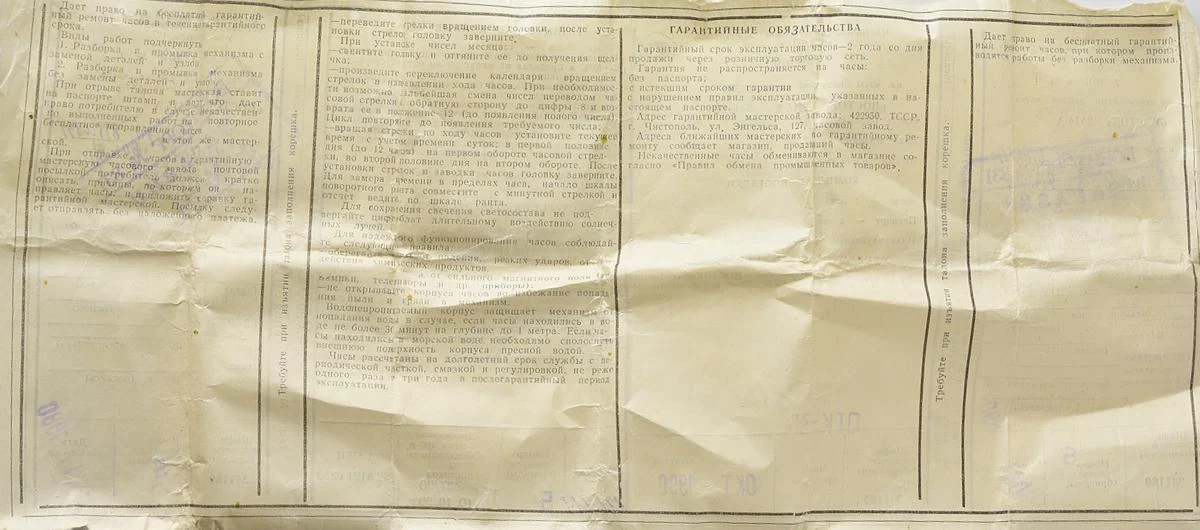 Дает право на бесплат гарантий-
ный ремонт часов в течение гарантийного
срока.
Виды работ подчеркнуть
1. Разборка и промывка механизма с
заменой деталей и узлов
2. Разборка и промывка механизма
без замены деталей и узлов
При отрыве талона мастерская ставит
на паспорте штамп и дату, что дает
право потребителю в случае некачествен-
но выполненных работ на повторное
бесплатное исправление часов
в этой же мастер-
ской.
При отправке часов в гарантийную
мастерскую часового завода почтовой
посылкой потребитель должен кратко
описать причины, по которым он на-
правляет часы, и приложить справку га-
рантийной мастерской. Посылку следу-
ет отправлять без наложенного платежа.
Требуйте при изъятии талона заполнения корешка.
—переведите стрелки вращением головки, после уста-
новки стрелок головку заверните.
При установке чисел месяца:
—свинтите головку и оттяните ее до получения щел-
чка;
—произведите переключение календаря вращением
стрелок в направлении хода часов. При необходимос-
ти возможна дальнейшая смена чисел переводом ча-
совой стрелки в обратную сторону до цифры 8 и воз-
врата ее в положение 12 (до появления нового числа)
Цикл повторяйте до появления требуемого числа;
—вращая стрелки по ходу часов установите текущее
время с учетом времени суток; в первой половине
дня (до 12 часов) на первом обороте часовой стрел-
ки, во второй половине дня на втором обороте. После
установки стрелок и заводки часов головку заверните.
Для замера времени в пределах часа, начало шкалы
поворотного ранта совместите с минутной стрелкой и
отсчет ведите по шкале ранта.
Для сохранения свечения светосостава не под-
вергайте циферблат длительному воздействию солнеч-
ных лучей.
Для надежного функционирования часов соблюдай-
те следующие правила:
—оберегайте от падения, резких ударов, от
действия химических продуктов,
а от сильного магнитного поля
телевизоры и др. приборы);
—не открывайте корпуса часов во избежание попада-
ния пыли и грязи в механизм.
Водонепроницаемый корпус защищает механизм от
попадания воды в случае, если часы находились в во-
де не более 30 минут на глубине до 1 метра. Если ча-
сы находились в морской воде необходимо сполоснуть
внешнюю поверхность корпуса пресной водой.
Часы рассчитаны на долголетний срок службы с пе-
риодической чисткой, смазкой и регулировкой, не реже
одного раза в три года в послегарантийный период
эксплуатации.
ГАРАНТИЙНЫЕ ОБЯЗАТЕЛЬСТВА
Гарантийный срок эксплуатации часов—2 года со дня
продажи через розничную торговую сеть.
Гарантия не распространяется на часы:
без паспорта;
с истекшим сроком гарантии
с нарушением правил эксплуатации, указанных в на-
стоящем паспорте.
Адрес гарантийной мастерской завода: 422950, ТССР,
г. Чистополь, ул. Энгельса, 127, часовой завод.
Адреса ближайших мастерских по гарантийному ре-
монту сообщает магазин, продавший часы.
Некачественные часы обмениваются в магазине со-
гласно «Правил обмена промышленных товаров».
Требуйте при изъятии талона заполнения корешка.
Дает право на бесплатный гарантий-
ный ремонт часов, при котором произ-
водятся работы без разборки механизма.